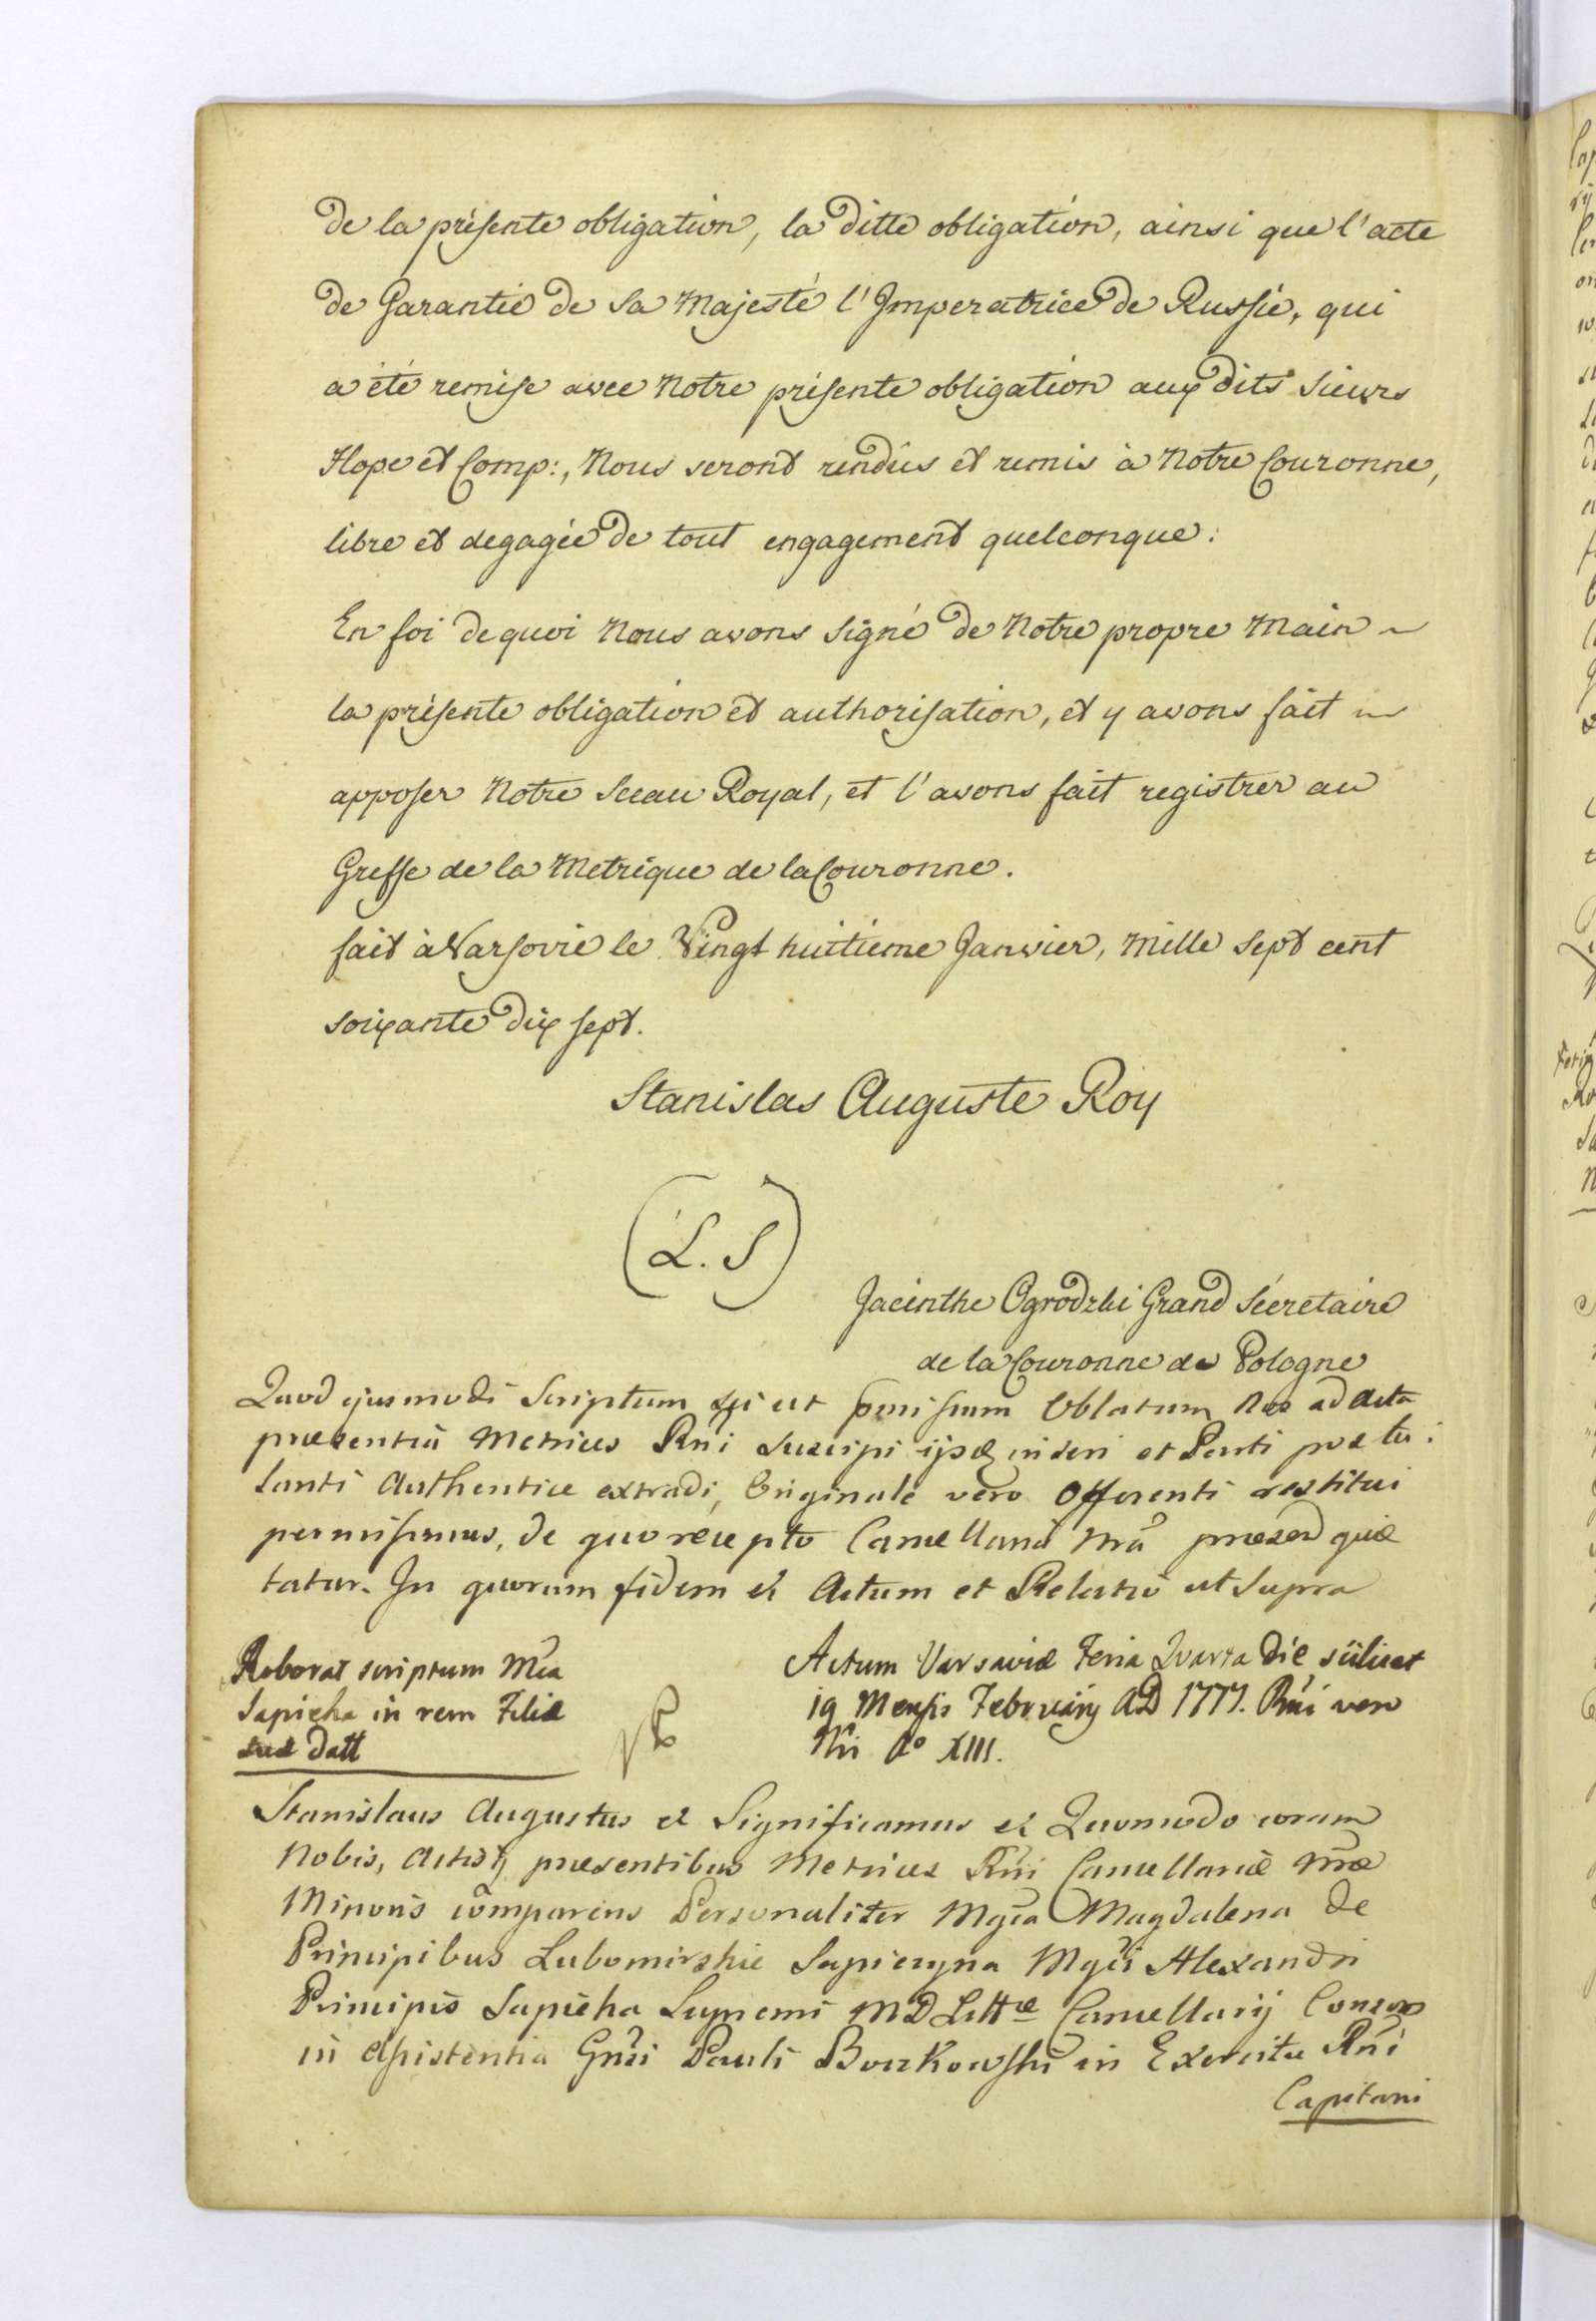 de la présente obligation, la ditte obligation, ainsi que l'acte
de Garantie de sa Majesté l'Imperatrice de Russie, qui
a été remise avec Notre présente obligation aux dits Sieurs
Hope et Comp:, Nous seront rendûs et remis à Notre Couronne,
libre et degagée de tout engagement quelconque:
En foi de quoi Nous avons Signé de Notre propre Main
la présente obligation et authorisation, et y avons fait
apposer Notre Sceau Royal, et l'avons fait registrer au
Greffe de la Metrique de la Couronne.
fait à Varsovie le Vingt huitieme Janvier, Mille Sept cent
soixante dix sept.
Stanislas Auguste Roy
(L.S)
Jacinthe Ogrodzki Grand Sécretaire
de la Couronne de Pologne
Quod ejusmodi Scriptum Oblatum Nos ad Acta
praesentia Metrices Rni Suscipi ijsq inseri et Parti postu:
lanti Authentice extradi, Originale vero Offerenti restitui
permisimus, de quo recepto Cancellaria Nra quie
tatur. In quorum fidem & Actum et Relatio ut Supra
Roborat scriptum Mca
Sapieha in rem Filiæ
suæ Datt
Actum Varsaviæ Feria Quarta Die scilicet
19 Mensis Februarij AD 1777. Rni vero
Nri Ao XIII.
Stanislaus Augustus & Significamus & Quomodo coram
Nobis, Actisq praesentibus Metrices Rni Cancellariæ Nræ
Minoris comparens Personaliter Mgca Magdalena de
Principibus Lubomirskie Sapiezyna Mgci Alexandri
Principis Sapieha Supremi MD Litt Cancellarij Consors
in Assistentia Gnsi Pauli in Exercitu Rni
Capitani